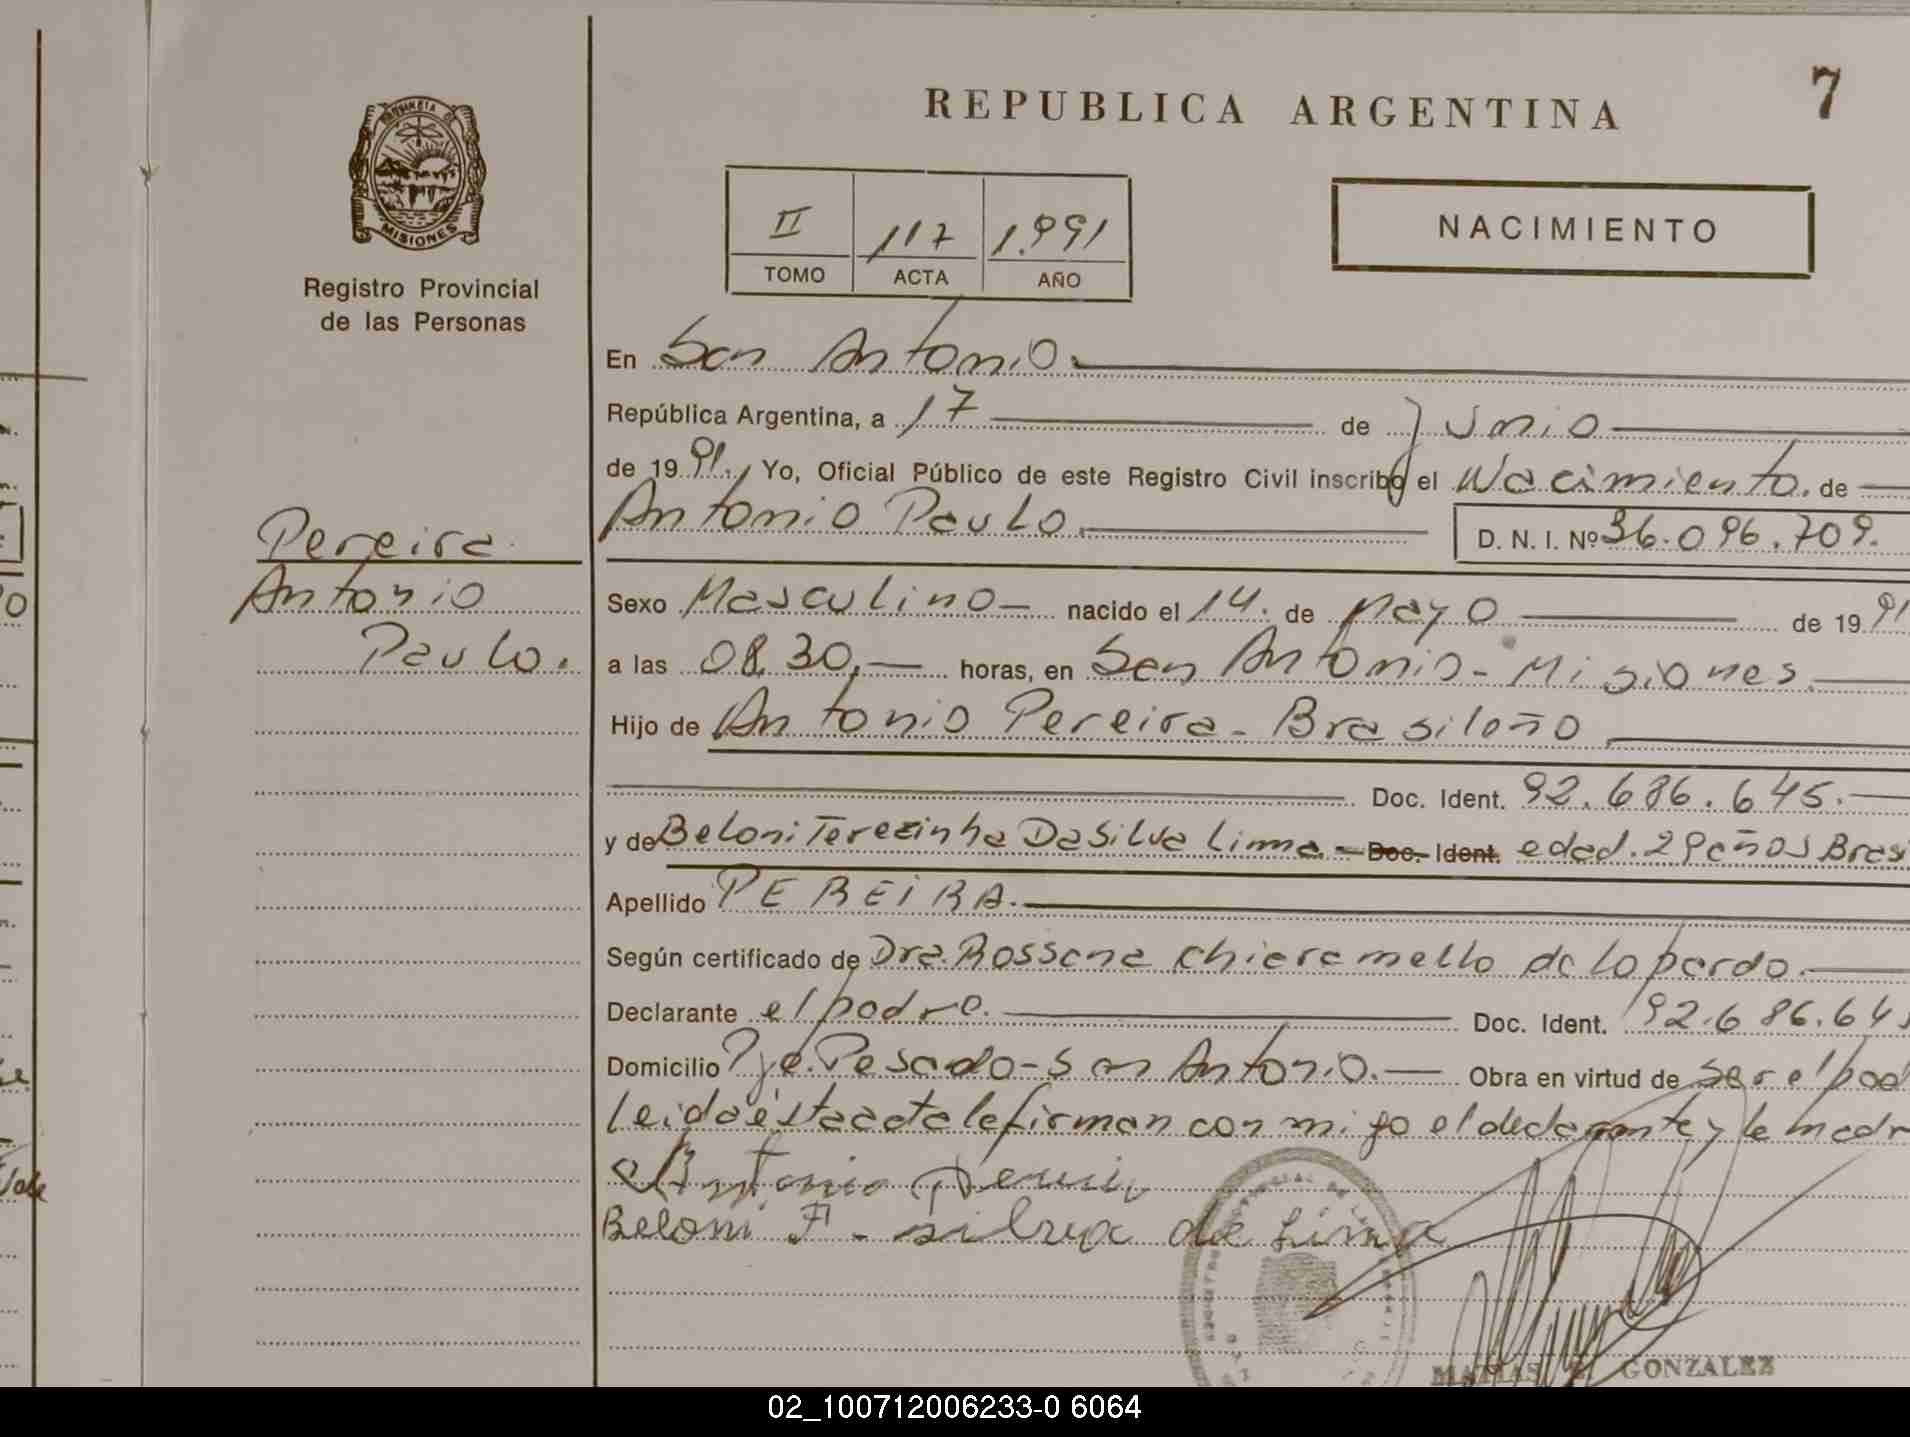 REPUBLICA ARGENTINA
7
PROVINCIA DE
MISIONES
Registro Provincial
de las Personas
II 117 1.991
TOMO ACTA AÑO
NACIMIENTO
En San Antonio.
República Argentina, a 17 de Junio
de 19 91. Yo, Oficial Público de este Registro Civil inscribo el Nacimiento. de
Antonio Paulo. D. N. I. Nº 36.096.709.
Pereira
Antonio
Paulo.
Sexo Masculino nacido el 14. de Mayo de 19 91
a las 08,30, horas, en San Antonio - Misiones.
Hijo de Antonio Pereira - Brasileño
Doc. Ident. 92.686.645.
y de Beloni Terezinha Da Silva Lima - Doc. Ident. edad. 29 años Brasi
Apellido PEREIRA.
Según certificado de Dra. Rossana Chiaramello de Lopardo.
Declarante el padre. Doc. Ident. 92.686.645
Domicilio Pje. Pesado - San Antonio. Obra en virtud de ser el pad
Leida ésta acta la firman con migo el declarante y la madr
Antonio
Beloni T - silva de Lima
MATIAS GONZALEZ
02_100712006233-0 6064